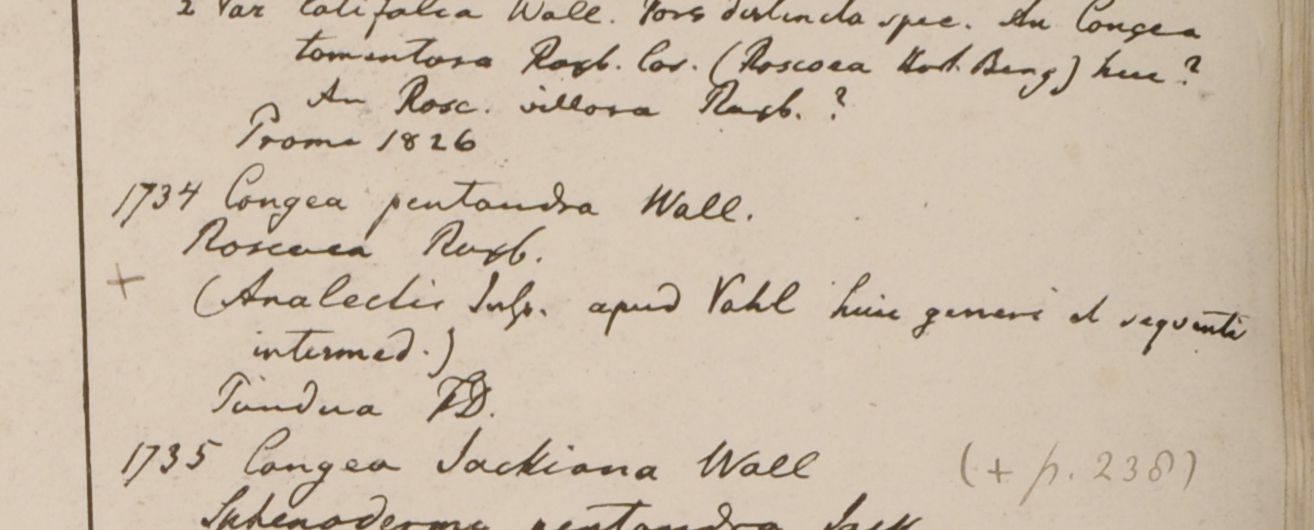 2 Var latifolia Wall. Fors distincta spec. An Congea
tomentosa Roxb. Cor. (Roscoea Hort. Beng) huc?
An Rosc. villosa Roxb.?
Prome 1826
1734 Congea pentandra Wall.
Roscoea Roxb.
+
(Analectis Juss. apud Vahl huic generi et sequenti
intermed.)
Tundua FD.
1735 Congea Jackiana Wall (+ p. 238)
Sphenodesma pentandra Jack